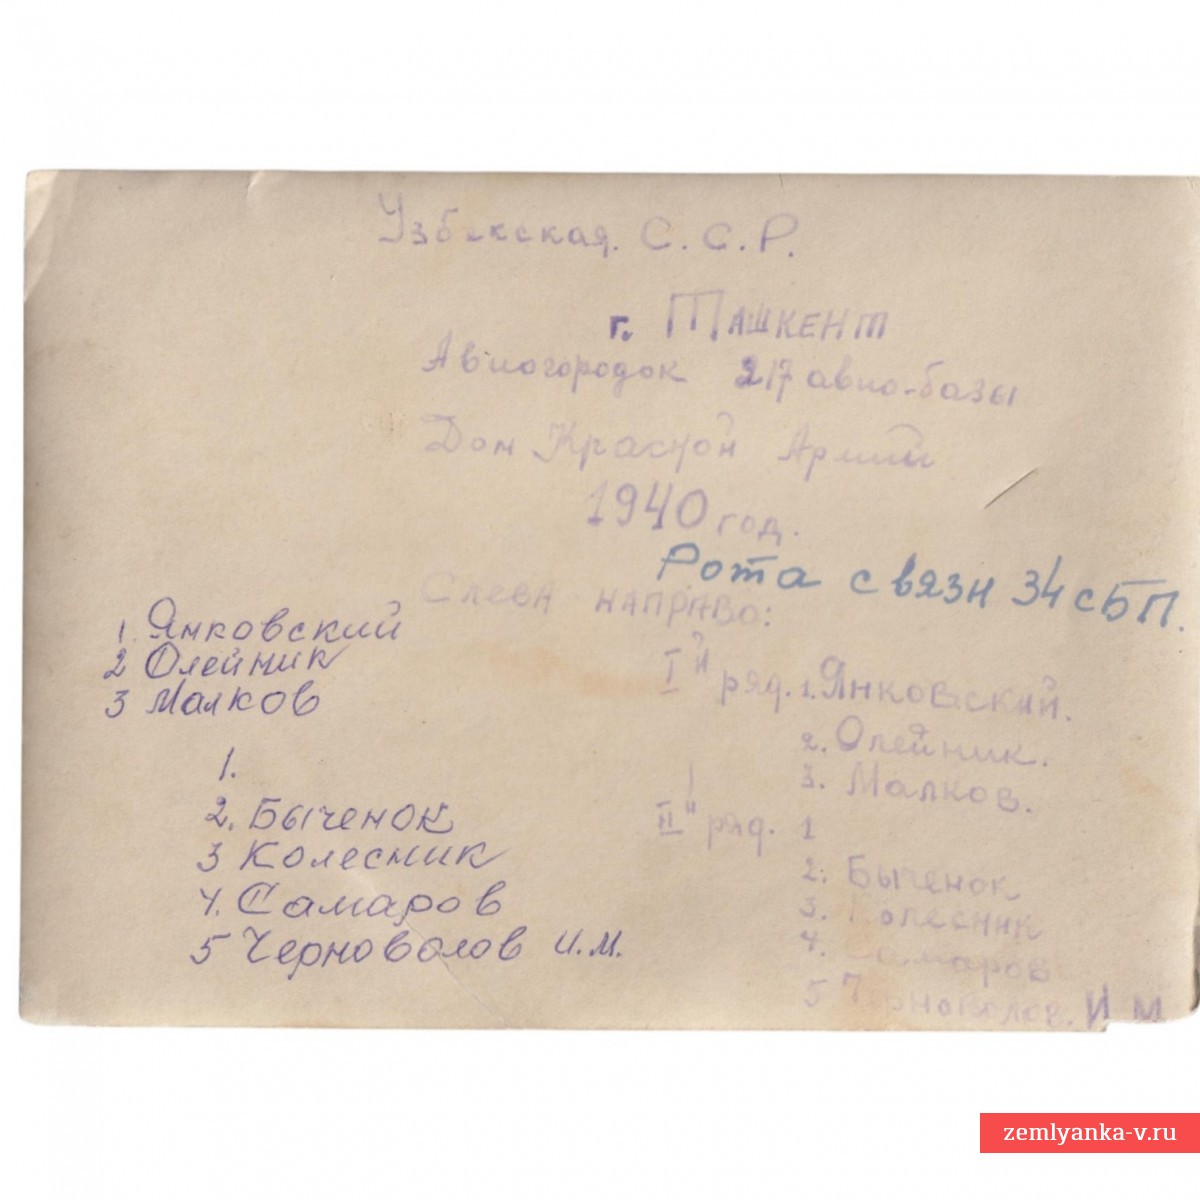 Узбекская. С. С. Р.
г. Ташкент
Авиогородок 217 авио-базы
Дом Красной Армии
1940 год.
Рота связи 34 сБП.
Слева направо:
I й ряд. 1. Янковский.
2. Олейник.
3. Малков.
II й ряд. 1
2. Быченок
3. Колесник
4. Самаров
5 Черноволов. И М
1 Янковский
2 Олейник
3 Малков
1.
2. Быченок
3 Колесник
4. Самаров
5 Черноволов И.М.
zemlyanka-v.ru